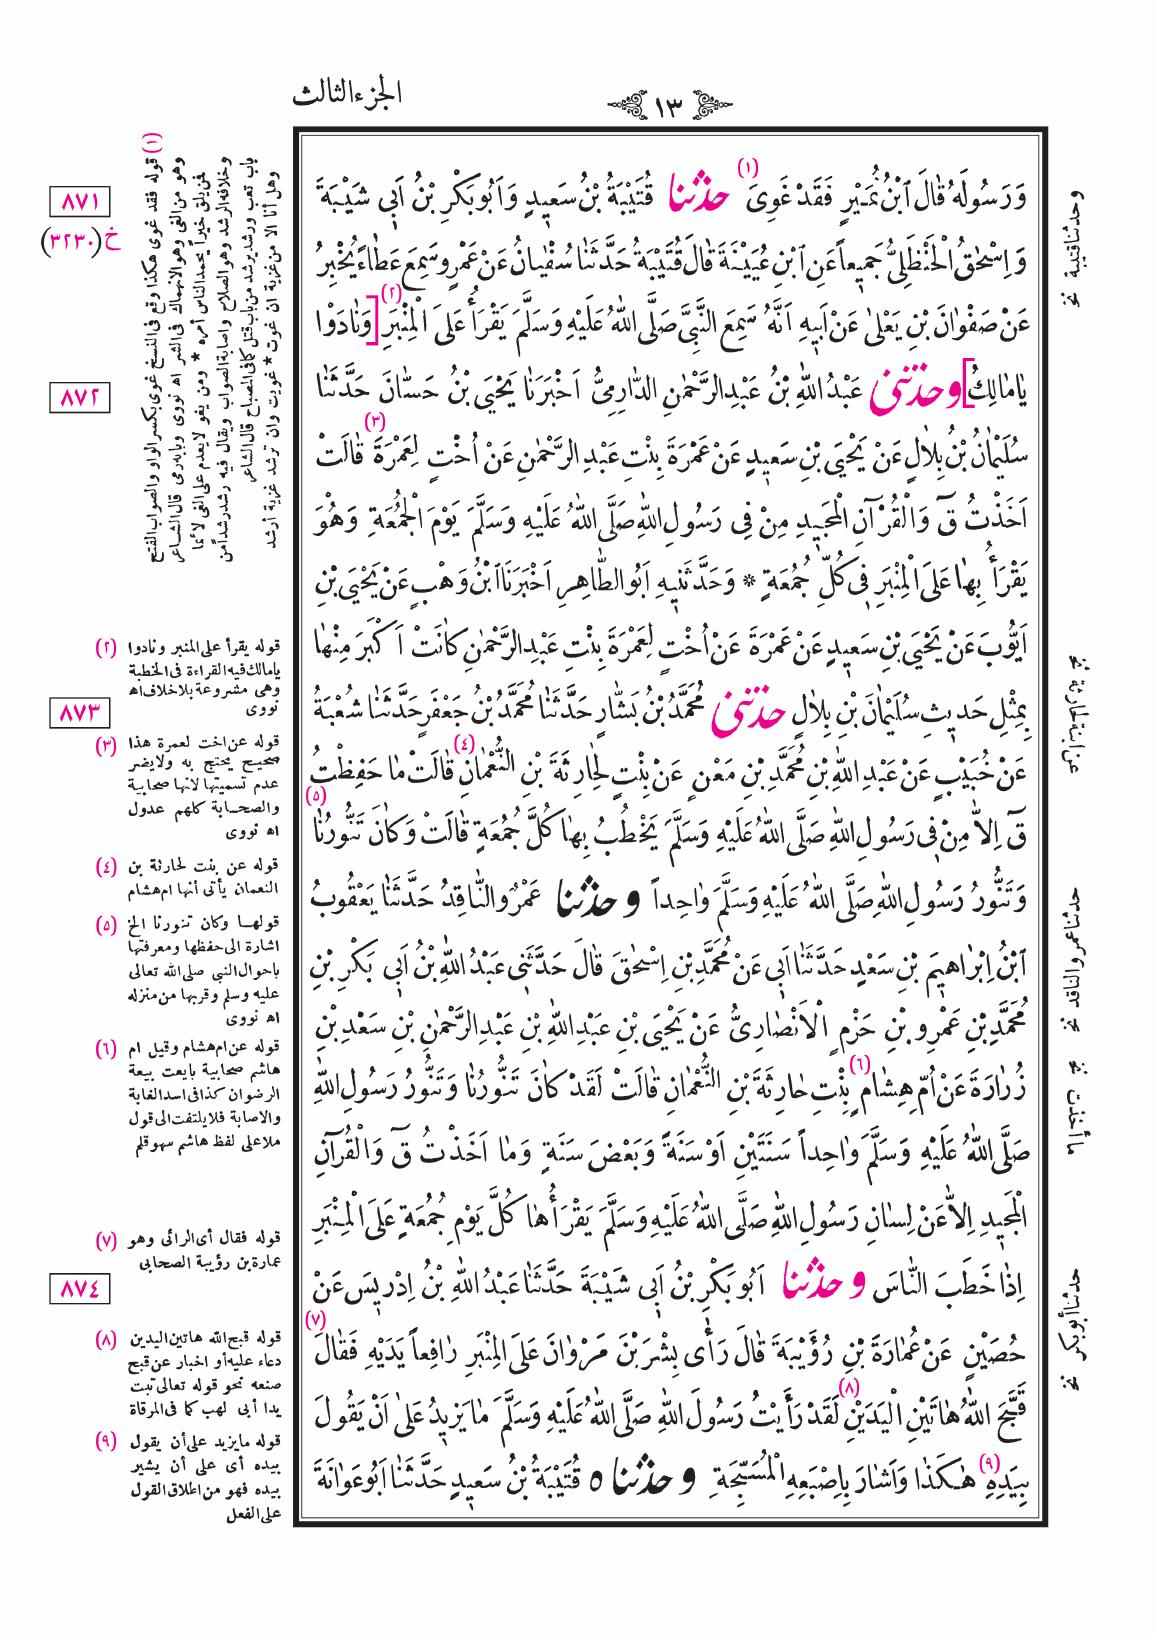 الجزء الثالث
١٣
وَرَسُولَهُ قَالَ ابْنُ نُمَيْرٍ فَقَدْ غَوِىَ (١) حدثنا قُتَيْبَةُ بْنُ سَعِيدٍ وَاَبُوبَكْرِ بْنُ اَبِي شَيْبَةَ
وَاِسْحٰقُ الْحَنْظَلِيُّ جَمِيعاً عَنِ ابْنِ عُيَيْنَةَ قَالَ قُتَيْبَةُ حَدَّثَنَا سُفْيَانُ عَنْ عَمْرٍو سَمِعَ عَطَاءً يُخْبِرُ
عَنْ صَفْوَانَ بْنِ يَعْلىٰ عَنْ اَبِيهِ اَنَّهُ سَمِعَ النَّبِيَّ صَلَّى اللّٰهُ عَلَيْهِ وَسَلَّمَ يَقْرَأُ عَلَى الْمِنْبَرِ (٢) [وَنَادَوْا
يَامَالِكُ] وحدثنى عَبْدُ اللّٰهِ بْنُ عَبْدِ الرَّحْمٰنِ الدَّارِمِيُّ اَخْبَرَنَا يَحْيَى بْنُ حَسَّانَ حَدَّثَنَا
سُلَيْمَانُ بْنُ بِلَالٍ عَنْ يَحْيَى بْنِ سَعِيدٍ عَنْ عَمْرَةَ بِنْتِ عَبْدِ الرَّحْمٰنِ عَنْ اُخْتٍ لِعَمْرَةَ (٣) قَالَتْ
اَخَذْتُ قۤ وَالْقُرْآنِ الْمَجِيدِ مِنْ فِي رَسُولِ اللّٰهِ صَلَّى اللّٰهُ عَلَيْهِ وَسَلَّمَ يَوْمَ الْجُمُعَةِ وَهُوَ
يَقْرَأُ بِهَا عَلَى الْمِنْبَرِ فِي كُلِّ جُمُعَةٍ * وَحَدَّثَنِيهِ اَبُوالطَّاهِرِ اَخْبَرَنَا ابْنُ وَهْبٍ عَنْ يَحْيَى بْنِ
اَيُّوبَ عَنْ يَحْيَى بْنِ سَعِيدٍ عَنْ عَمْرَةَ عَنْ اُخْتٍ لِعَمْرَةَ بِنْتِ عَبْدِ الرَّحْمٰنِ كَانَتْ اَكْبَرَ مِنْهَا
بِمِثْلِ حَدِيثِ سُلَيْمَانَ بْنِ بِلَالٍ حدثنى مُحَمَّدُ بْنُ بَشَّارٍ حَدَّثَنَا مُحَمَّدُ بْنُ جَعْفَرٍ حَدَّثَنَا شُعْبَةُ
عَنْ خُبَيْبٍ عَنْ عَبْدِ اللّٰهِ بْنِ مُحَمَّدِ بْنِ مَعْنٍ عَنْ بِنْتٍ لِحَارِثَةَ بْنِ النُّعْمَانِ (٤) قَالَتْ مَا حَفِظْتُ
قۤ اِلَّا مِنْ فِي رَسُولِ اللّٰهِ صَلَّى اللّٰهُ عَلَيْهِ وَسَلَّمَ يَخْطُبُ بِهَا كُلَّ جُمُعَةٍ قَالَتْ وَكَانَ تَنُّورُنَا (٥)
وَتَنُّورُ رَسُولِ اللّٰهِ صَلَّى اللّٰهُ عَلَيْهِ وَسَلَّمَ وَاحِداً وحدثنا عَمْرٌو النَّاقِدُ حَدَّثَنَا يَعْقُوبُ
ابْنُ اِبْرَاهِيمَ بْنِ سَعْدٍ حَدَّثَنَا اَبِي عَنْ مُحَمَّدِ بْنِ اِسْحٰقَ قَالَ حَدَّثَنِي عَبْدُ اللّٰهِ بْنُ اَبِي بَكْرِ بْنِ
مُحَمَّدِ بْنِ عَمْرِو بْنِ حَزْمٍ الْاَنْصَارِيُّ عَنْ يَحْيَى بْنِ عَبْدِ اللّٰهِ بْنِ عَبْدِ الرَّحْمٰنِ بْنِ سَعْدِ بْنِ
زُرَارَةَ عَنْ اُمِّ هِشَامٍ (٦) بِنْتِ حَارِثَةَ بْنِ النُّعْمَانِ قَالَتْ لَقَدْ كَانَ تَنُّورُنَا وَتَنُّورُ رَسُولِ اللّٰهِ
صَلَّى اللّٰهُ عَلَيْهِ وَسَلَّمَ وَاحِداً سَنَتَيْنِ اَوْ سَنَةً وَبَعْضَ سَنَةٍ وَمَا اَخَذْتُ قۤ وَالْقُرْآنِ
الْمَجِيدِ اِلَّا عَنْ لِسَانِ رَسُولِ اللّٰهِ صَلَّى اللّٰهُ عَلَيْهِ وَسَلَّمَ يَقْرَأُهَا كُلَّ يَوْمِ جُمُعَةٍ عَلَى الْمِنْبَرِ
اِذَا خَطَبَ النَّاسَ وحدثنا اَبُو بَكْرِ بْنُ اَبِي شَيْبَةَ حَدَّثَنَا عَبْدُ اللّٰهِ بْنُ اِدْرِيسَ عَنْ
حُصَيْنٍ عَنْ عُمَارَةَ بْنِ رُؤَيْبَةَ قَالَ رَأَى بِشْرَ بْنَ مَرْوَانَ عَلَى الْمِنْبَرِ رَافِعاً يَدَيْهِ فَقَالَ (٧)
قَبَّحَ اللّٰهُ هَاتَيْنِ الْيَدَيْنِ (٨) لَقَدْ رَأَيْتُ رَسُولَ اللّٰهِ صَلَّى اللّٰهُ عَلَيْهِ وَسَلَّمَ مَا يَزِيدُ عَلىٰ اَنْ يَقُولَ
بِيَدِهِ (٩) هٰكَذَا وَاَشَارَ بِاِصْبَعِهِ الْمُسَبِّحَةِ وحدثناه قُتَيْبَةُ بْنُ سَعِيدٍ حَدَّثَنَا اَبُو عَوَانَةَ
وحدثنا قتيبة نخ
عن ابنة لحارثة نخ
حدثنا عمرو الناقد نخ
ما أخذت نخ
حدثنا أبو بكر نخ
٨٧١
خ (٣٢٣٠)
٨٧٢
٨٧٣
٨٧٤
(١) قوله فقد غوى هكذا وقع فى النسخ غوى بكسر الواو والصواب الفتح
وهو من الغى وهو الانهماك فى الشر اه نووى وبابه رمى قال الشاعر
فمن يلق خيراً يحمد الناس أمره * ومن يغو لا يعدم على الغى لائما
وخلافه الرشد وهو الصلاح واصابة الصواب ويقال فيه رشد رشداً من
باب تعب ورشد يرشد من باب قتل كما فى المصباح قال الشاعر
وهل أنا الا من غزية ان غوت * غويت وان ترشد غزية أرشد
(٢) قوله يقرأ على المنبر ونادوا
يامالك فيه القراءة فى الخطبة
وهى مشروعة بلاخلاف اه
نووى
(٣) قوله عن اخت لعمرة هذا
صحيح يحتج به ولا يضر
عدم تسميتها لانها صحابية
والصحابة كلهم عدول
اه نووى
(٤) قوله عن بنت لحارثة بن
النعمان يأتى أنها ام هشام
(٥) قولها وكان تنورنا الخ
اشارة الى حفظها ومعرفتها
باحوال النبى صلى الله تعالى
عليه وسلم وقربها من منزله
اه نووى
(٦) قوله عن ام هشام وقيل ام
هاشم صحابية بايعت بيعة
الرضوان كذا فى اسد الغابة
والاصابة فلا يلتفت الى قول
ملا على لفظ هاشم سهو قلم
(٧) قوله فقال أى الرائى وهو
عمارة بن رؤيبة الصحابى
(٨) قوله قبح الله هاتين اليدين
دعاء عليه أو اخبار عن قبح
صنعه نحو قوله تعالى تبت
يدا أبى لهب كما فى المرقاة
(٩) قوله ما يزيد على أن يقول
بيده أى على أن يشير
بيده فهو من اطلاق القول
على الفعل